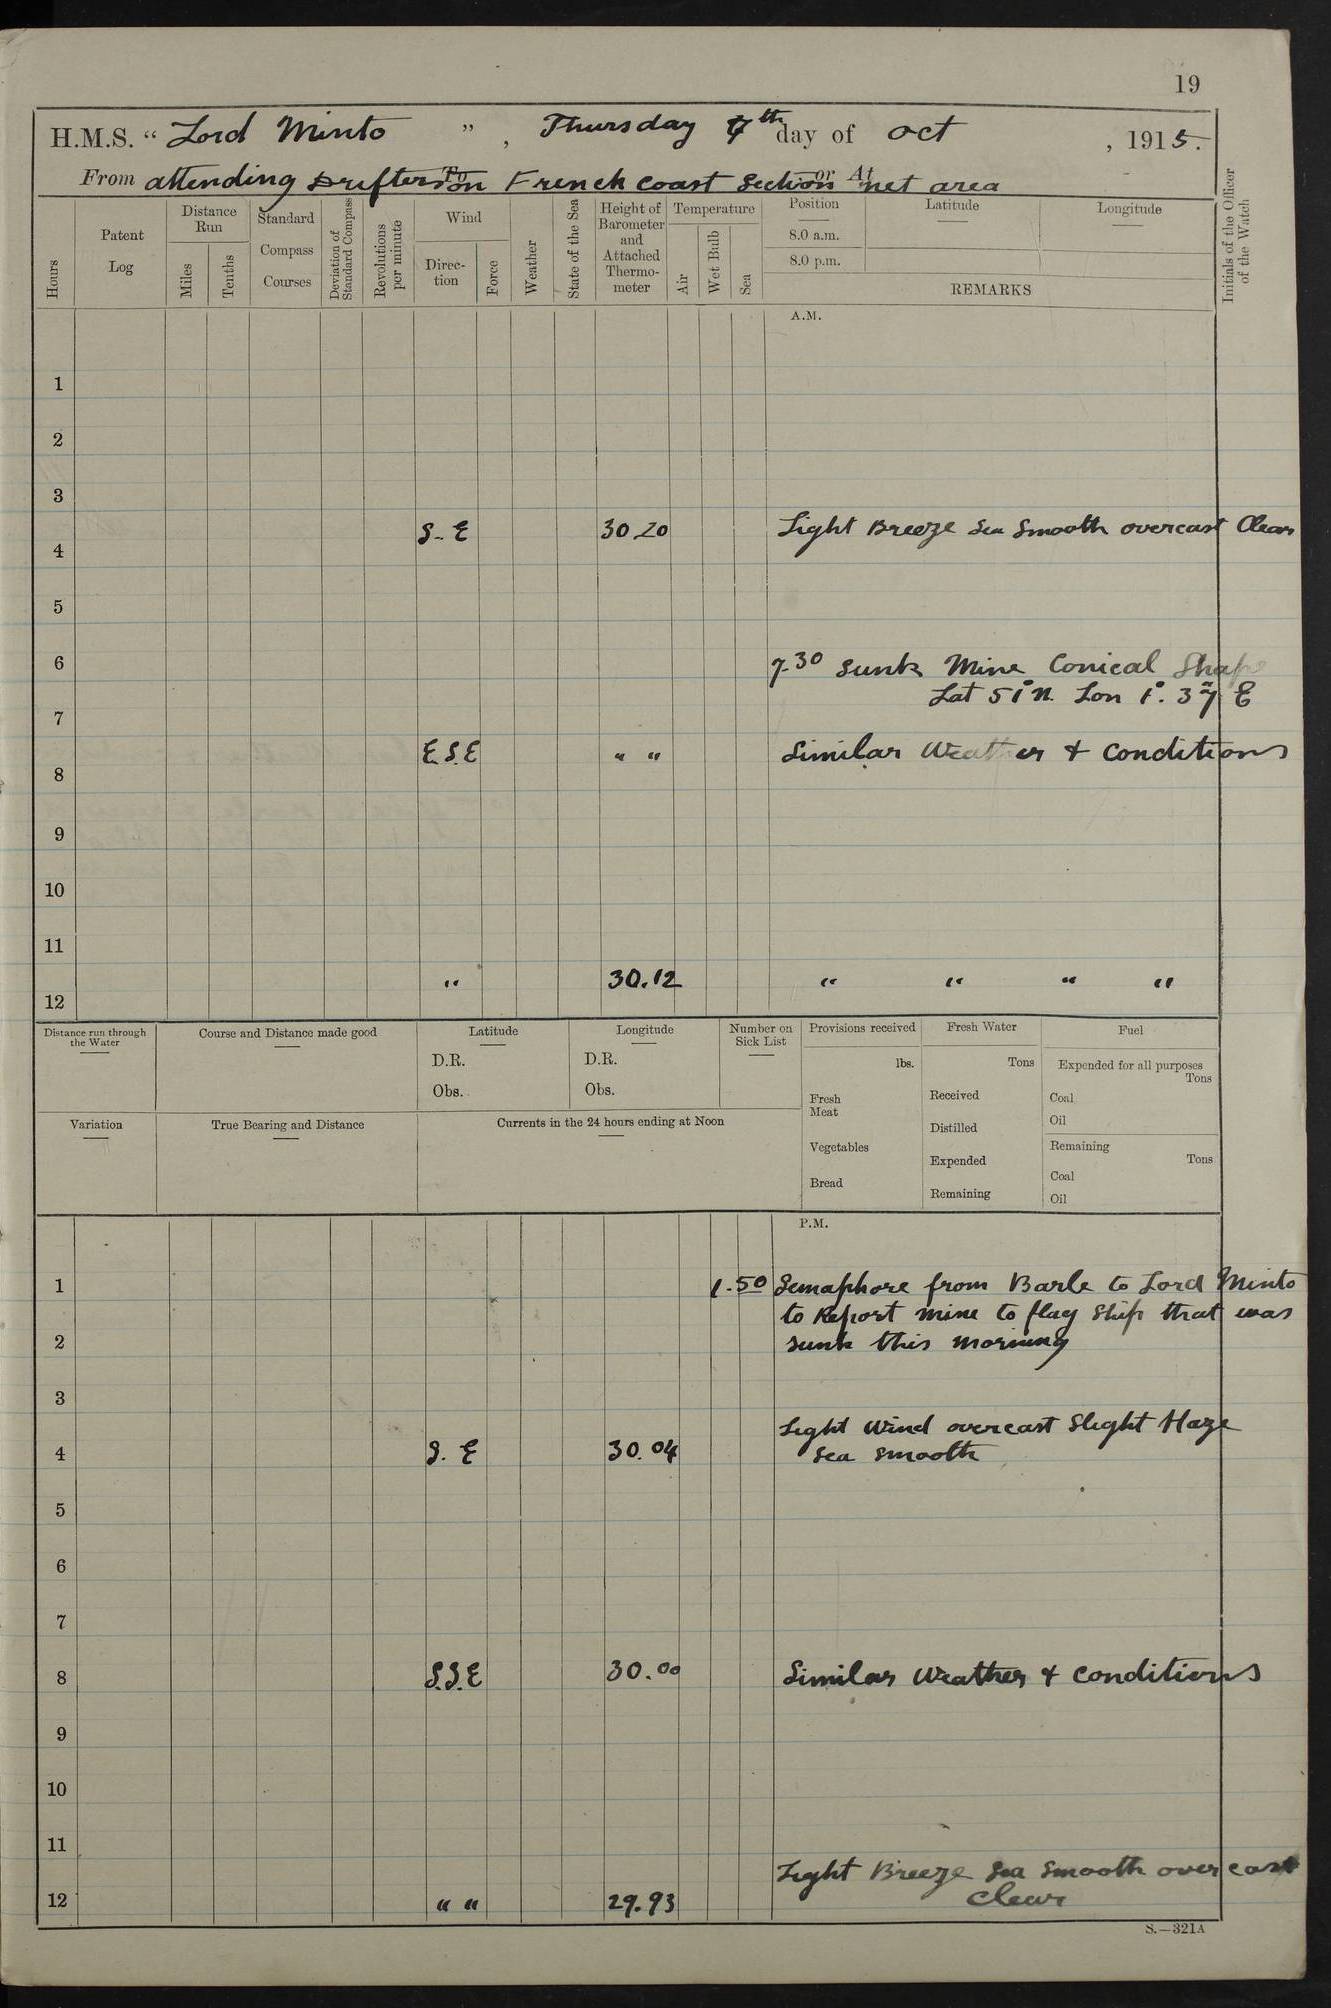 19
H.M.S. “ Lord Minto ”, Thursday 7th day of Oct , 1915.
From attending Drifters To on French coast Section or At net area
Hours
Patent Log
Distance Run
Miles
Tenths
Standard Compass Courses
Deviation of Standard Compass
Revolutions per minute
Wind
Direc-tion
Force
Weather
State of the Sea
Height of Barometer and Attached Thermo-meter
Temperature
Air
Wet Bulb
Sea
Position
8.0 a.m.
8.0 p.m.
Latitude
Longitude
REMARKS
Initials of the Officer of the Watch
A.M.
1
2
3
S.E 30.20 Light Breeze Sea Smooth overcast Clear
4
5
6 7.30 Sunk Mine Conical Shape
Lat 51° N. Lon 1°. 37 E
7
E.S.E " " Similar Weather & Conditions
8
9
10
11
" 30.12 " " " "
12
Distance run through the Water
Course and Distance made good
Latitude
D.R.
Obs.
Longitude
D.R.
Obs.
Number on Sick List
Provisions received
lbs.
Fresh Meat
Vegetables
Bread
Fresh Water
Tons
Received
Distilled
Expended
Remaining
Fuel
Expended for all purposes
Tons
Coal
Oil
Remaining
Tons
Coal
Oil
Variation
True Bearing and Distance
Currents in the 24 hours ending at Noon
P.M.
1 1.50 Semaphore from Barle to Lord Minto
to Report mine to flag Ship that was
2 sunk this morning
3
Light Wind overcast Slight Haze
4 S. E 30.04 Sea smooth
5
6
7
8 S.S.E 30.00 Similar Weather & conditions
9
10
11
Light Breeze Sea Smooth overcast
12 " " 29.93 Clear
S.—321A